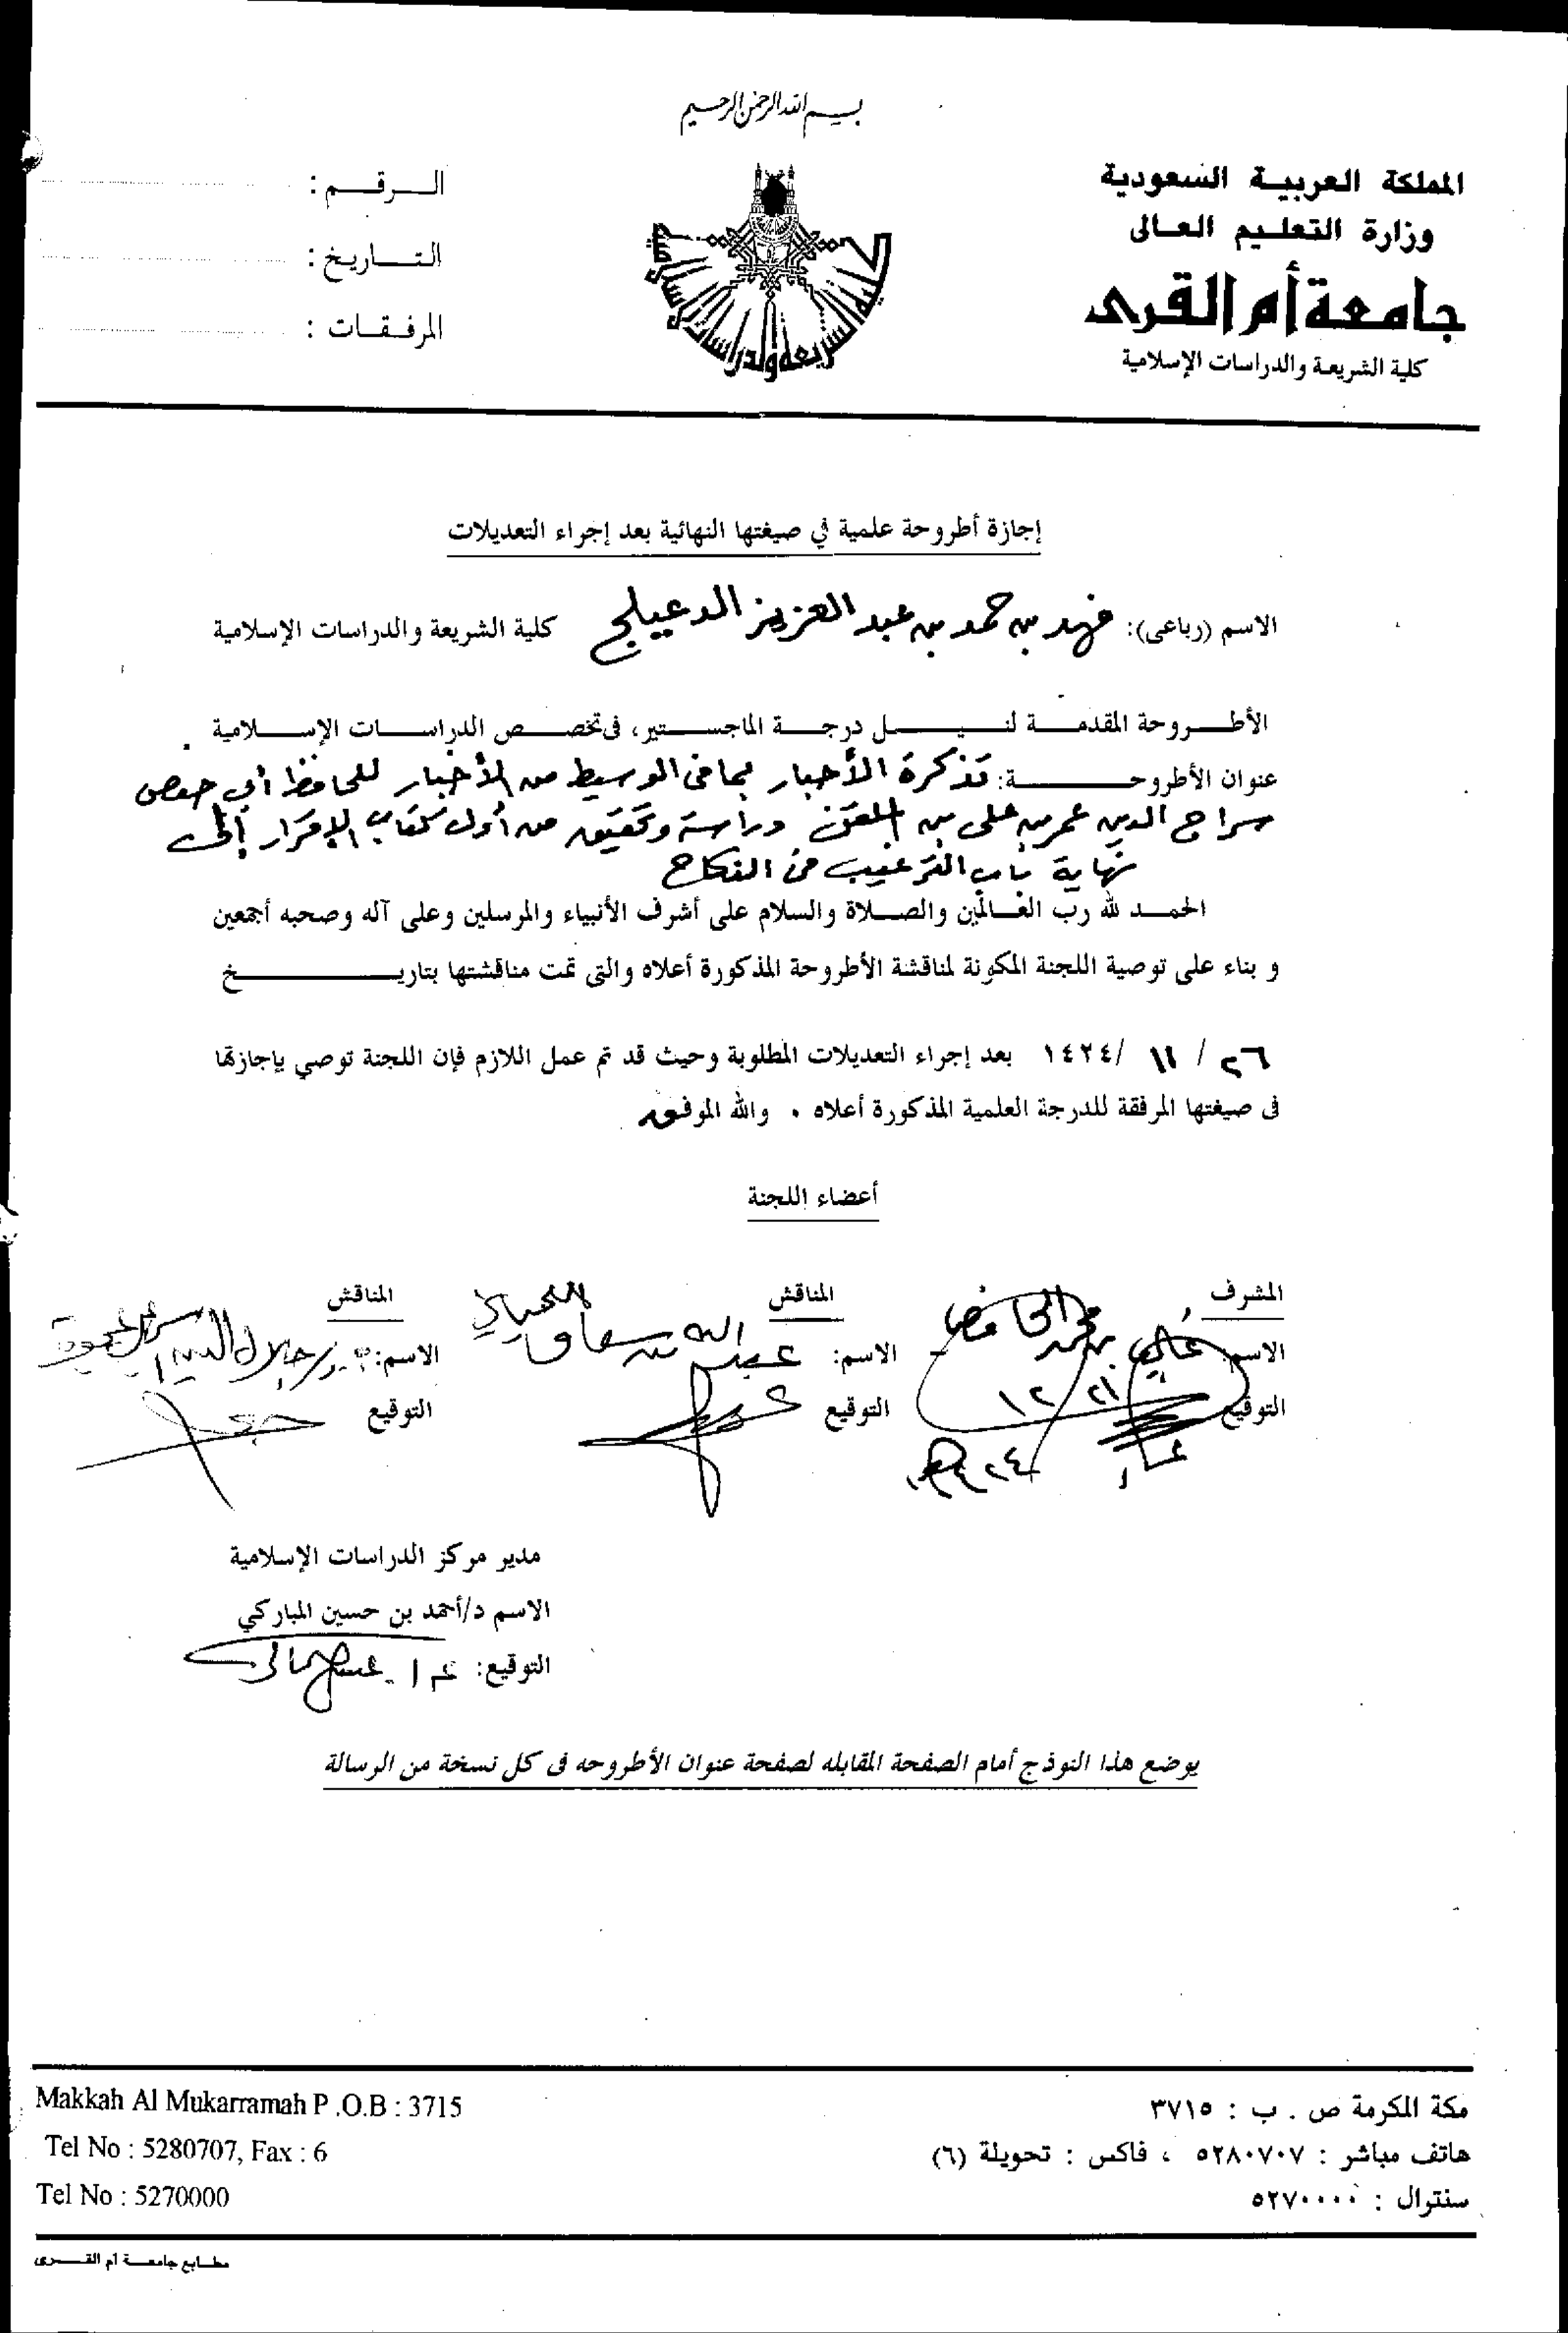 بسم الله الرحمن الرحيم
المملكة العربية السعودية
وزارة التعليم العالى
جامعة أم القرى
كلية الشريعة والدراسات الإسلامية
الرقم :
التاريخ :
المرفقات :
إجازة أطروحة علمية في صيغتها النهائية بعد إجراء التعديلات
الاسم (رباعى): فهد بن حمد بن عبد العزيز الدعيلج كلية الشريعة والدراسات الإسلامية
الأطروحة المقدمة لنيل درجة الماجستير، فى تخصص الدراسات الإسلامية
عنوان الأطروحة: تذكرة الأخبار بما في الوسيط من الأخبار للحافظ أبي حفص
سراج الدين عمر بن علي بن الملقن دراسة وتحقيق من أول كتاب الإقرار إلى
نهاية باب الترغيب من النكاح
الحمد لله رب العالمين والصلاة والسلام على أشرف الأنبياء والمرسلين وعلى آله وصحبه أجمعين
و بناء على توصية اللجنة المكونة لمناقشة الأطروحة المذكورة أعلاه والتى تمت مناقشتها بتاريخ
٢٦ / ١١ /١٤٢٤ بعد إجراء التعديلات المطلوبة وحيث قد تم عمل اللازم فإن اللجنة توصي بإجازتها
فى صيغتها المرفقة للدرجة العلمية المذكورة أعلاه . والله الموفق
أعضاء اللجنة
المشرف
الاسم علي بن محمد
التوقيع ٢١ / ١٢
المناقش
الاسم: عبد الله بن سعاف اللحياني
التوقيع
المناقش
الاسم: جلال الدين
التوقيع
مدير مركز الدراسات الإسلامية
الاسم د/أحمد بن حسين المباركي
التوقيع:
يوضع هذا النوذج أمام الصفحة المقابله لصفحة عنوان الأطروحه فى كل نسخة من الرسالة
Makkah Al Mukarramah P .O.B : 3715
Tel No : 5280707, Fax : 6
Tel No : 5270000
مكة المكرمة ص . ب : ٣٧١٥
هاتف مباشر : ٥٢٨٠٧٠٧ ، فاكس : تحويلة (٦)
سنترال : ٥٢٧٠٠٠٠
مطابع جامعة أم القرى